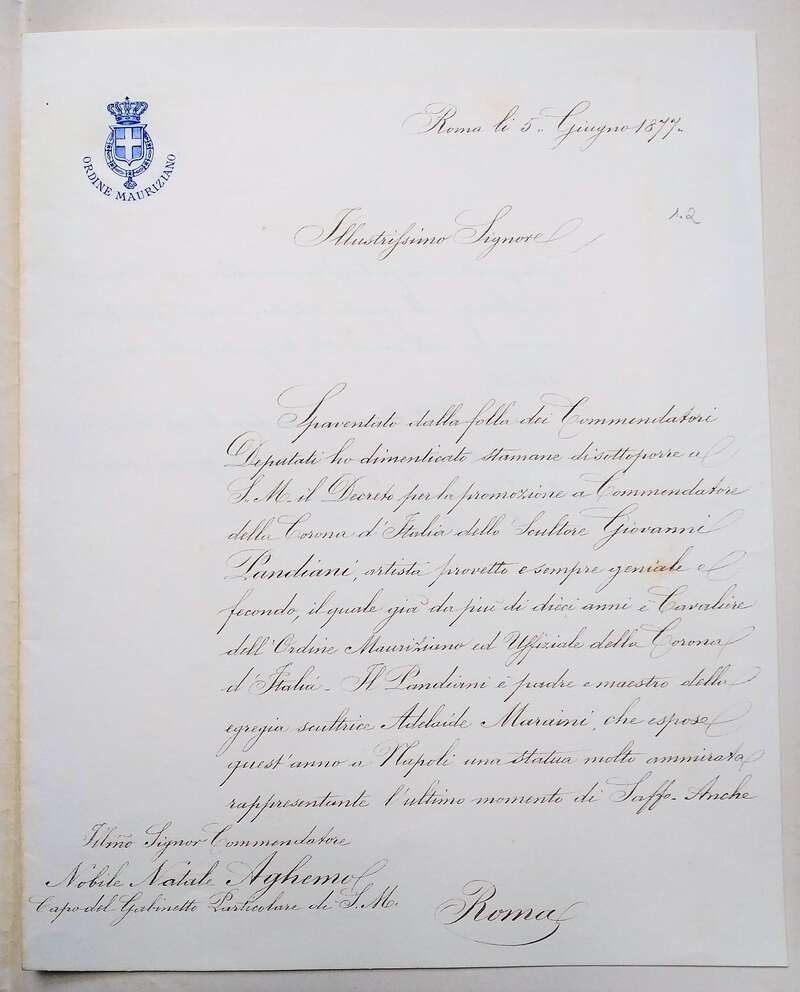 ORDINE MAURIZIANO
Roma li 5. Giugno 1877.
1.2
Illustrissimo Signore
Spaventato dalla folla dei Commendatori
Deputati ho dimenticato stamane di sottoporre a
S. M. il Decreto per la promozione a Commendatore
della Corona d'Italia dello Scultore Giovanni
Pandiani, artista provetto e sempre geniale e
fecondo, il quale già da più di dieci anni è Cavaliere
dell'Ordine Mauriziano ed Uffiziale della Corona
d'Italia - Il Pandiani è padre e maestro della
egregia scultrice Adelaide Maraini, che espose
quest'anno a Napoli una statua molto ammirata
rappresentante l'ultimo momento di Saffo - Anche
Illm̃o Signor Commendatore
Nobile Natale Aghemo
Capo del Gabinetto Particolare di S. M.
Roma